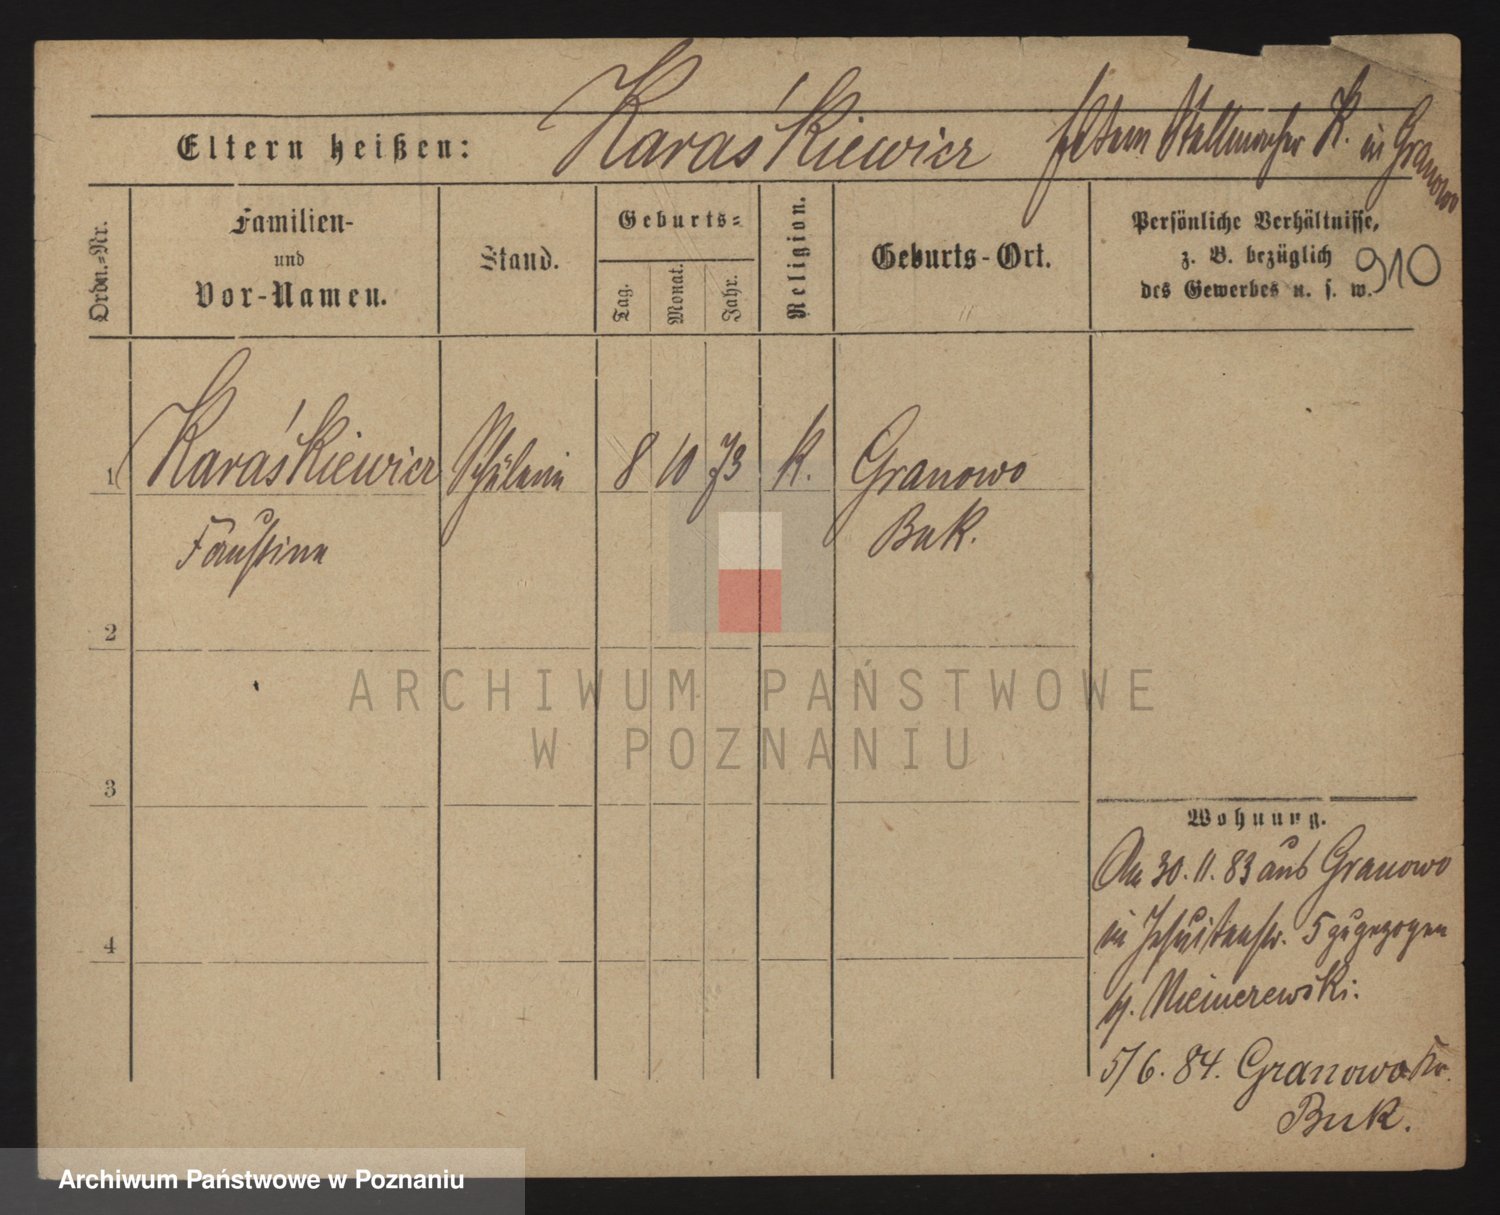 Eltern heißen: Karaśkiewicz Eltern Stellmacher K. in Granowo
Ordn.=Nr.
Familien-
und
Vor-Namen.
Stand.
Geburts=
Tag.
Monat.
Jahr.
Religion.
Geburts-Ort.
Persönliche Verhältnisse,
z. B. bezüglich
des Gewerbes u. s. w.
910
1 Karaśkiewicz Schülerin 8 10 73 K. Granowo
Faustina Buk.
2
3
4
Wohnung.
Am 30. 11. 83 aus Granowo
in Jesuitenstr. 5 zugezogen
b.
5/6. 84. Granowo Kr.
Buk.
ARCHIWUM PAŃSTWOWE
W POZNANIU
Archiwum Państwowe w Poznaniu